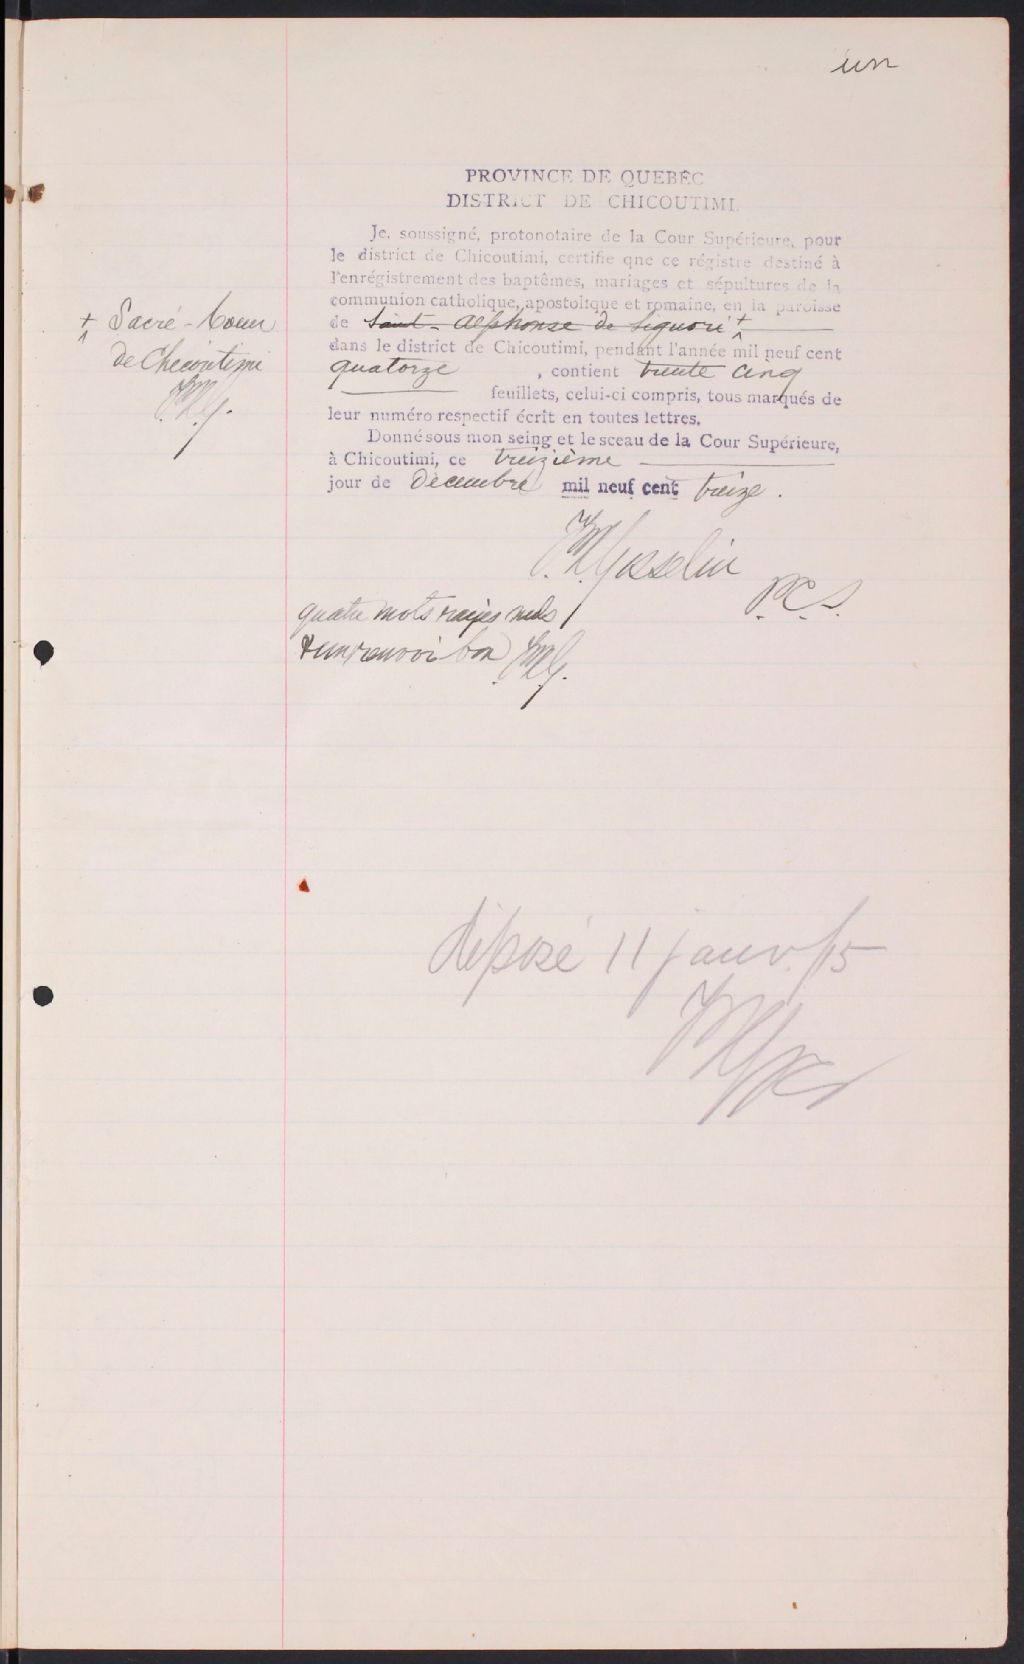 un
PROVINCE DE QUEBEC
DISTRICT DE CHICOUTIMI.
Je, soussigné, protonotaire de la Cour Supérieure, pour
le district de Chicoutimi, certifie qne ce régistre destiné à
l'enrégistrement des baptêmes, mariages et sépultures de la
communion catholique, apostolique et romaine, en la paroisse
de Saint-Alphonse de Liguori +
+ Sacré-Coeur
de Chicoutimi
dans le district de Chicoutimi, pendant l'année mil neuf cent
quatorze, contient trente cinq
feuillets, celui-ci compris, tous marqués de
leur numéro respectif écrit en toutes lettres.
Donné sous mon seing et le sceau de la Cour Supérieure,
à Chicoutimi, ce treizième
jour de décembre mil neuf cent treize.
Gosselin
P.C.S.
quatre mots rayés nuls
& un renvoi bon
déposé 11 janv. 15